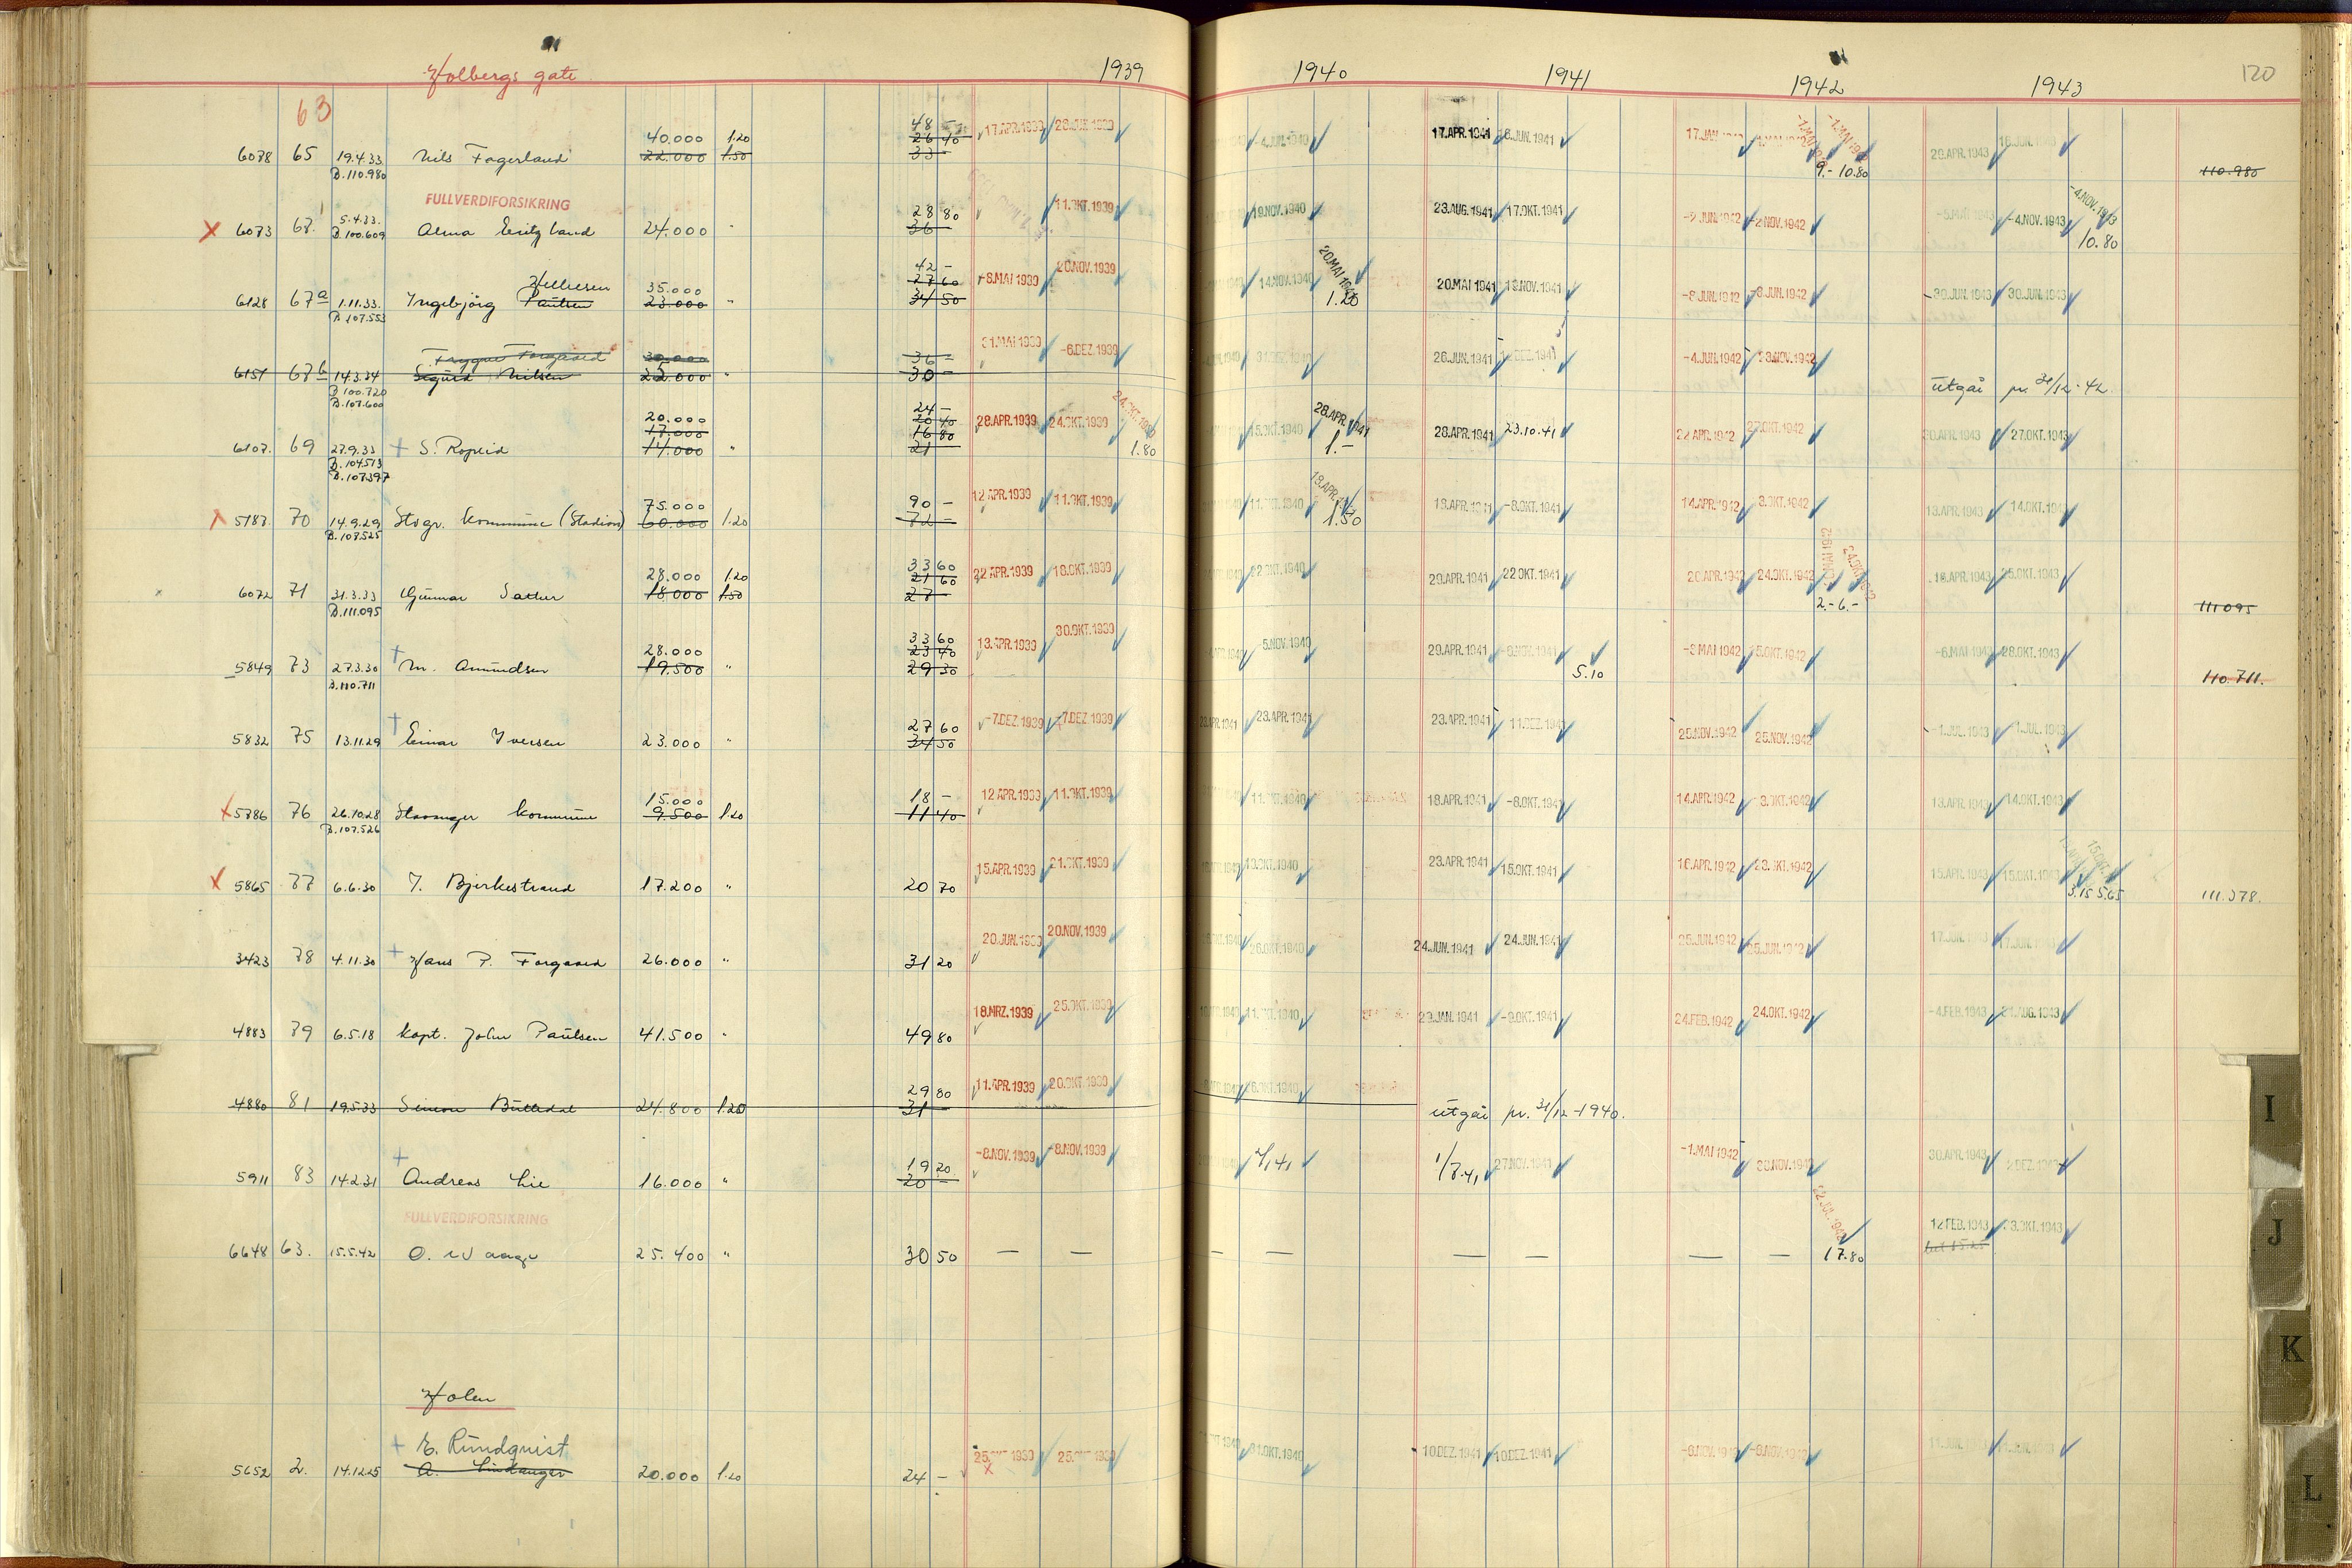 Holbergs gate 1939 1940 1941 1942 1943 120
63
40.000 1.20 48 -
26 40 17.APR.1939 17.APR.1941 6.JUN.1941
6078 65 19.4.33 Nils Fagerland 22.000 1.50 33 - 20.APR.1943
B.110.980 9.- 10.80 110.980
FULLVERDIFORSIKRING
5.4.33. 28 80 11.OKT.1939 19.NOV.1940 23.AUG.1941 17.OKT.1941 -2.JUN.1942 -2.NOV.1942 -5.MAI 1943 -4.NOV.1943 -4.NOV.1943
6073 68. B.100.609 Alma 24.000 " 36 - 10.80
Hellesen 35.000 42 -
27 60 -8.MAI 1939 20.NOV.1939 14.NOV.1940 20.MAI 1941 20.MAI 1941 13.NOV.1941
6128 67a 1.11.33. Ingebjörg Paulsen 23.000 " 34 50 1.20 -8.JUN.1942 -8.JUN.1942 30.JUN.1943 30.JUN.1943
B.107.553
Trygve Torgaard 30.000 36 - 31.MAI 1939 -6.DEZ.1939 26.JUN.1941 DEZ.1941 -4.JUN.1942 23.NOV.1942
6151 67b 14.3.34 Sigurd Nilsen 25.000 " 30 - utgår pr. 31/12-42
B.100.720
B.107.600
20.000 24 - 24.OKT.1939
17.000 20 40 28.APR.1939 24.OKT.1939 15.OKT.1940 28.APR.1941
16 80 28.APR.1941 23.10.41 22.APR.1942 27.OKT.1942 30.APR.1943 27.OKT.1943
6107. 69 27.9.33 S. Ropeid 14.000 " 21 - 1.80 1.-
B.104.513
B.107.397
75.000 90 - 12.APR.1939 11.OKT.1939 11.OKT.1940 18.APR.1941 18.APR.1941 -8.OKT.1941 14.APR.1942 -3.OKT.1942 13.APR.1943 14.OKT.1943
5187. 70 14.9.29 Stvgr. kommune (Stadion) 60.000 1.20 72 - 1.50
B.107.525
28.000 1.20 33 60
21 60 22.APR.1939 18.OKT.1939 22.OKT.1940 29.APR.1941 22.OKT.1941 20.APR.1942 24.OKT.1942 24.OKT.1942 25.OKT.1943
6072 71 31.3.33 Gunnar Sætter 18.000 1.50 27 - 2.- 6.- 111095
B.111.095
28.000 33 60
23 40 13.APR.1939 30.OKT.1939 -5.NOV.1940 29.APR.1941 -8.NOV.1941 -8.MAI 1942 15.OKT.1942 -6.MAI 1943 28.OKT.1943
5849 73 27.3.30 M. Amundsen 19.500 " 29 30 5.10 110.711.
B.110.711
27 60 -7.DEZ.1939 -7.DEZ.1939 23.APR.1941 23.APR.1941 23.APR.1941 11.DEZ.1941 25.NOV.1942 25.NOV.1942 -1.JUL.1943 -1.JUL.1943
5832 75 13.11.29 Einar Iversen 23.000 " 34 50
15.000 18 - 12.APR.1939 11.OKT.1939 11.OKT.1940 18.APR.1941 -8.OKT.1941 14.APR.1942 -3.OKT.1942 13.APR.1943 14.OKT.1943
5786 76 26.10.28 Stavanger kommune 9.500 1.20 11 40
B.107.526
15.APR.1939 21.OKT.1939 23.APR.1941 15.OKT.1941 16.APR.1942 23.OKT.1942 15.APR.1943 15.OKT.1943
5865 77 6.6.30 J. Bjerkestrand 17.200 " 20 70 3.15 5.65 111.378.
20.JUN.1939 20.NOV.1939 26.OKT.1940 24.JUN.1941 24.JUN.1941 25.JUN.1942 25.JUN.1942 17.JUN.1943 17.JUN.1943
3423 78 4.11.30 Hans P. Torgaard 26.000 " 31 20
18.MRZ.1939 25.OKT.1939 29.JAN.1941 -9.OKT.1941 24.FEB.1942 24.OKT.1942 -4.FEB.1943 31.AUG.1943
4883 79 6.5.18 Kapt. John Paulsen 41.500 " 49 80
29 80 11.APR.1939 20.OKT.1939 26.OKT.1940
4880 81 19.5.33 Simon 24.800 1.20 31 - utgår pr. 31/12-1940.
19 20 -8.NOV.1939 -8.NOV.1939 1/8.41 27.NOV.1941 -1.MAI 1942 30.NOV.1942 30.APR.1943 DEZ.1943
5911 83 14.2.31 Andreas Lie 16.000 " 20 -
FULLVERDIFORSIKRING
12.FEB.1943 13.OKT.1943
6648 63. 15.5.42 O. Waage 25.400 " 30 50 — — — — — — — — 17.80
Holen
E. Rundquist 25.OKT.1939 25.OKT.1939 31.OKT.1940 10.DEZ.1941 10.DEZ.1941 -6.NOV.1942 -6.NOV.1942
5652 2. 14.12.25 A. Lindanger 20.000 1.20 24 -
I
J
K
L